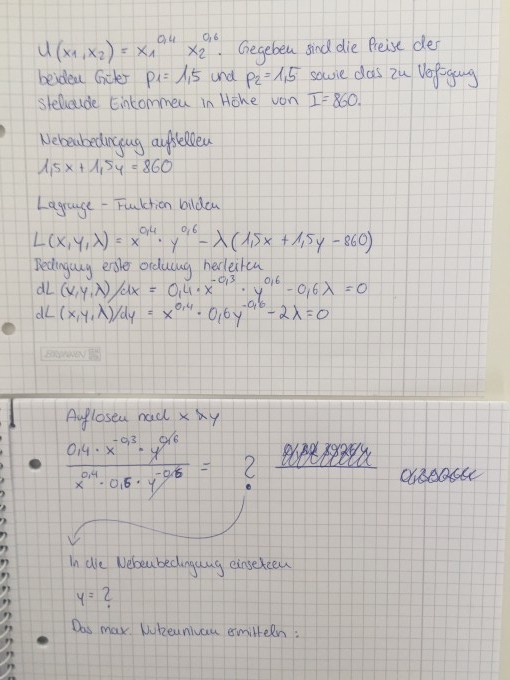 U(x₁,x₂) = x₁^0,4 x₂^0,6. Gegeben sind die Preise der
beiden Güter p₁= 1,5 und p₂= 1,5 sowie das zu Verfügung
stehende Einkommen in Höhe von I=860.
Nebenbedingung aufstellen
1,5x + 1,5y = 860
Lagrange - Funktion bilden
L(x,y,λ) = x^0,4 · y^0,6 - λ(1,5x + 1,5y - 860)
Bedingung erster ordnung herleiten
dL(x,y,λ)/dx = 0,4 · x^-0,3 · y^0,6 - 0,6λ = 0
dL(x,y,λ)/dy = x^0,4 · 0,6y^-0,6 - 2λ = 0
BRUNNEN
Auflösen nach x λ y
0,4 · x^-0,3 · y^0,6
x^0,4 · 0,6 · y^-0,6
= ?
In die Nebenbedingung einsetzen
y = ?
Das max. Nutzenniveau ermitteln: